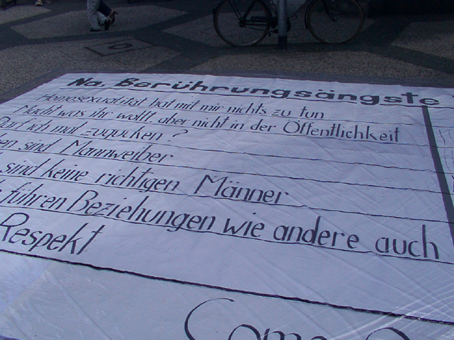 Na, Berührungsängste
Homosexualität hat mit mir nichts zu tun
Macht was ihr wollt aber nicht in der Öffentlichkeit
mal zugucken ?
sind Mannweiber
sind keine richtigen Männer
führen Beziehungen wie andere auch
Respekt
Come